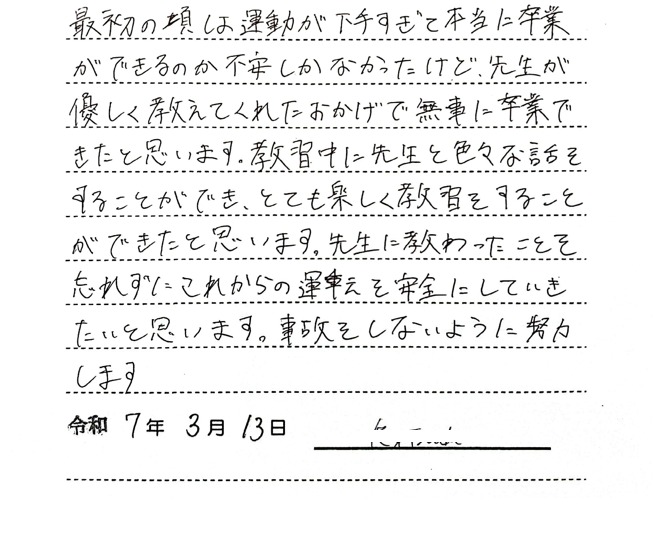 最初の頃は運動が下手すぎて本当に卒業
ができるのか不安しかなかったけど、先生が
優しく教えてくれたおかげで無事に卒業で
きたと思います。教習中に先生と色々な話を
することができ、とても楽しく教習をすること
ができたと思います。先生に教わったことを
忘れずにこれからの運転を安全にしていき
たいと思います。事故をしないように努力
します
令和 7年 3月 13日